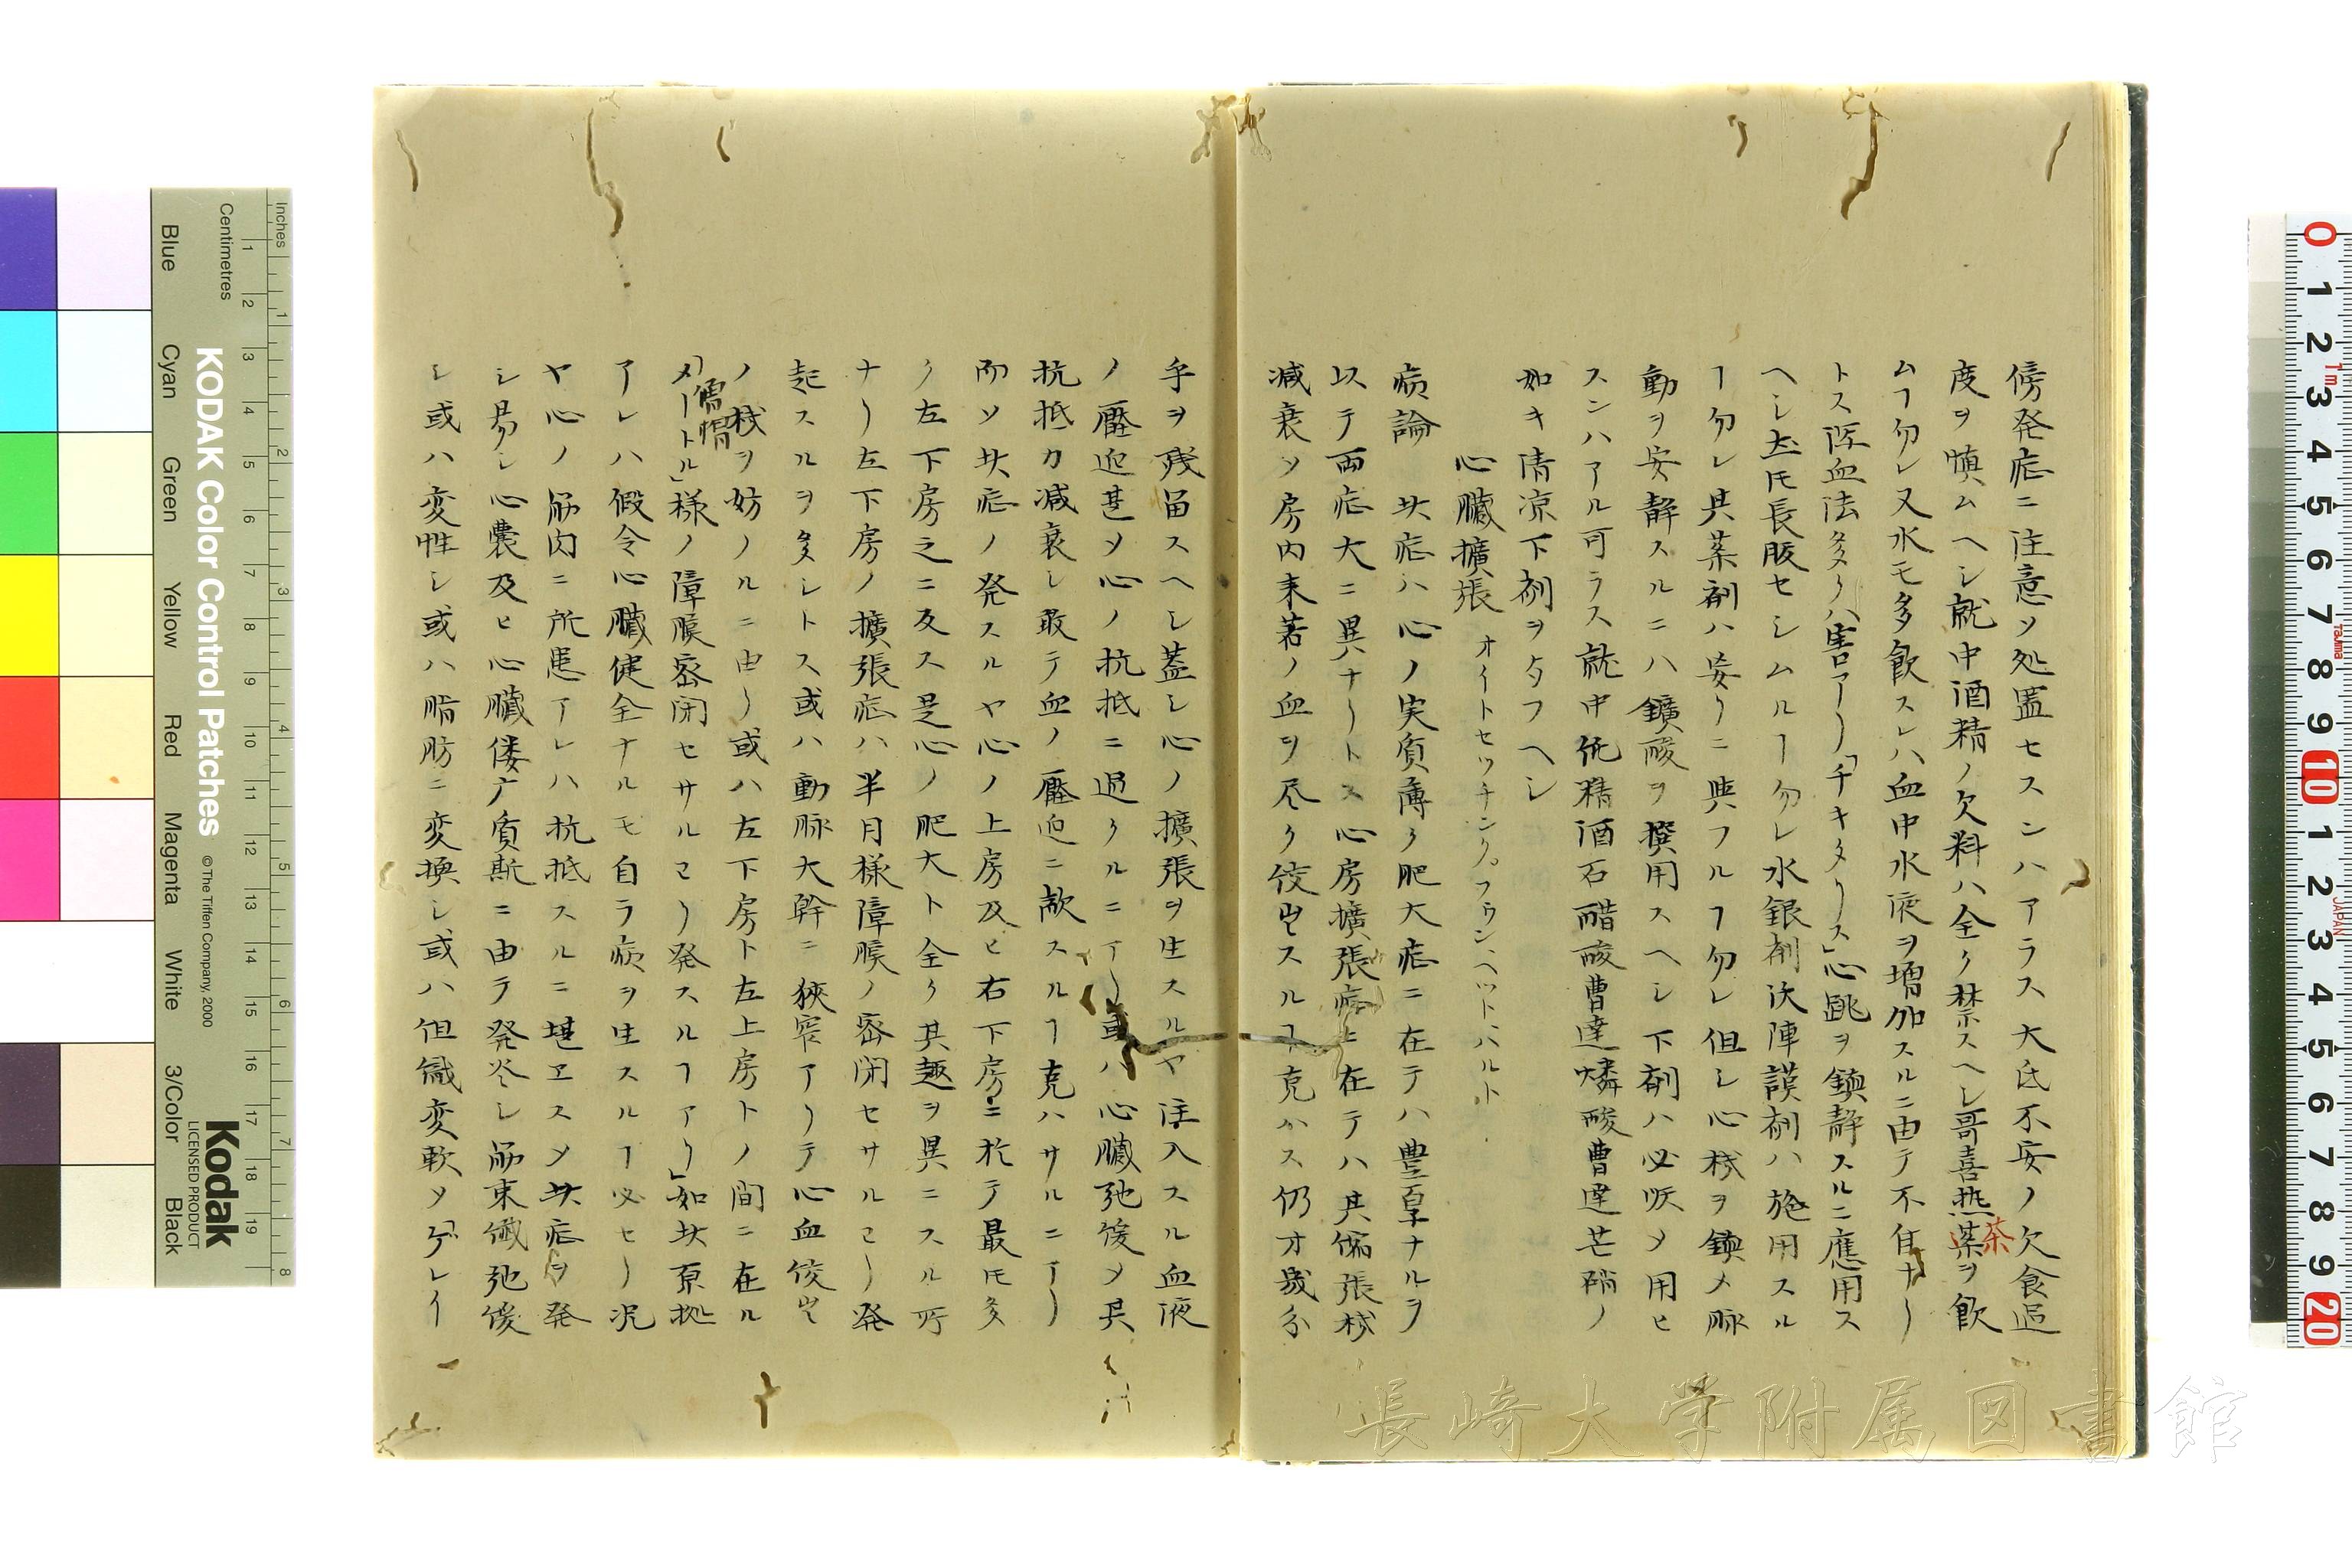 傍発症ニ注意ソ処置セスンハアラス大氐不安ノ欠食過
度ヲ慎ムヘシ就中酒精ノ欠料ハ全ク禁スヘシ哥喜熱茶ヲ飲
茶
ムヿ勿レ又水モ多飲スレハ血中水液ヲ増加スルニ由テ不佳ナリ
トス瀉血法多クハ害アリ「チキタリス」心跳ヲ鎮静スルニ應用ス
ヘシ𪜈長服セシムルヿ勿レ水銀剤沃陳謨剤ハ施用スル
ヿ勿レ其薬剤ハ妄リニ與フルヿ勿レ但シ心機ヲ鎮メ脈
動ヲ安静スルニハ鑛酸ヲ撰用スヘシ下剤ハ必以メ用ヒ
スンハアル可ラス就中佗精酒石醋酸曹達燐酸曹達芒硝ノ
如キ清凉下剤ヲ与フヘシ
心臓擴張 オイトセツチンク。フウン、ヘツト、ハルト
病論 此症ハ心ノ実質薄ク肥大症ニ在テハ豊阜ナルヲ
以テ両症大ニ異ナリトス心房擴張症ニ在テハ其縮張機
減衰ソ房内来着ノ血ヲ尽ク伇出スルヿ克ハス仍才幾分
乎ヲ残留スヘシ蓋シ心ノ擴張ヲ生スルヤ注入スル血液
ノ壓迫甚ソ心ノ抗抵ニ過クルニアリ或ハ心臓弛緩メ其
抗抵力減衰シ敢テ血ノ壓迫ニ敵スルヿ克ハサルニアリ
而ソ此症ノ発スルヤ心ノ上房及ヒ右下房ニ於テ最𪜈多
ク左下房之ニ及ス是心ノ肥大ト全ク其趣ヲ異ニスル所
ナリ左下房ノ擴張症ハ半月様障膜ノ密閉セサルヨリ発
起スルヲ多シトス或ハ動脈大幹ニ狭窄アリテ心血伇出
ノ機ヲ妨ノルニ由リ或ハ左下房ト左上房トノ間ニ在ル
儒帽
「メートル」様ノ障膜密閉セサルヨリ発スルヿアリ」如此原拠
アレハ假令心臓健全ナルモ自ラ病ヲ生スルヿ必セリ况
ヤ心ノ筋肉ニ所患アレハ抗抵スルニ堪ヱスメ此症ヲ発
シ易シ心嚢及ヒ心臓偻广質斯ニ由テ発炎シ筋束織弛緩
シ或ハ変性シ或ハ脂肪ニ変換シ或ハ但織変軟メ「ゲレイ
KODAK Color Control Patches
© The Tiffen Company, 2000
Kodak
LICENSED PRODUCT
Inches
Centimetres
Blue Cyan Green Yellow Red Magenta White 3/Color Black
長崎大学附属図書館